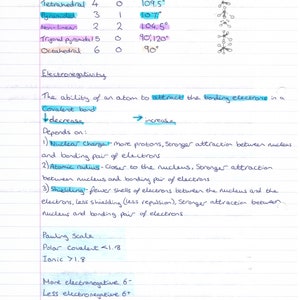 Tetrahedral 4 0 109.5°
Pyramidal 3 1 107°
Non-linear 2 2 104.5°
Trigonal pyramidal 5 0 90°,120°
Octahedral 6 0 90°
Electronegativity
The ability of an atom to attract the bonding electrons in a
Covalent bond
↓ decrease → increase
Depends on:
1) Nuclear Charge - more protons, Stronger attraction between nucleus
and bonding pair of electrons
2) Atomic radius - Closer to the nucleus, Stronger attraction
between nucleus and bonding pair of electrons
3) Shielding - fewer shells of electrons between the nucleus and the
electrons, less shielding (less repulsion), Stronger attraction between
nucleus and bonding pair of electrons.
Pauling Scale
Polar Covalent <1.8
Ionic >1.8
More electronegative δ-
Less electronegative δ+